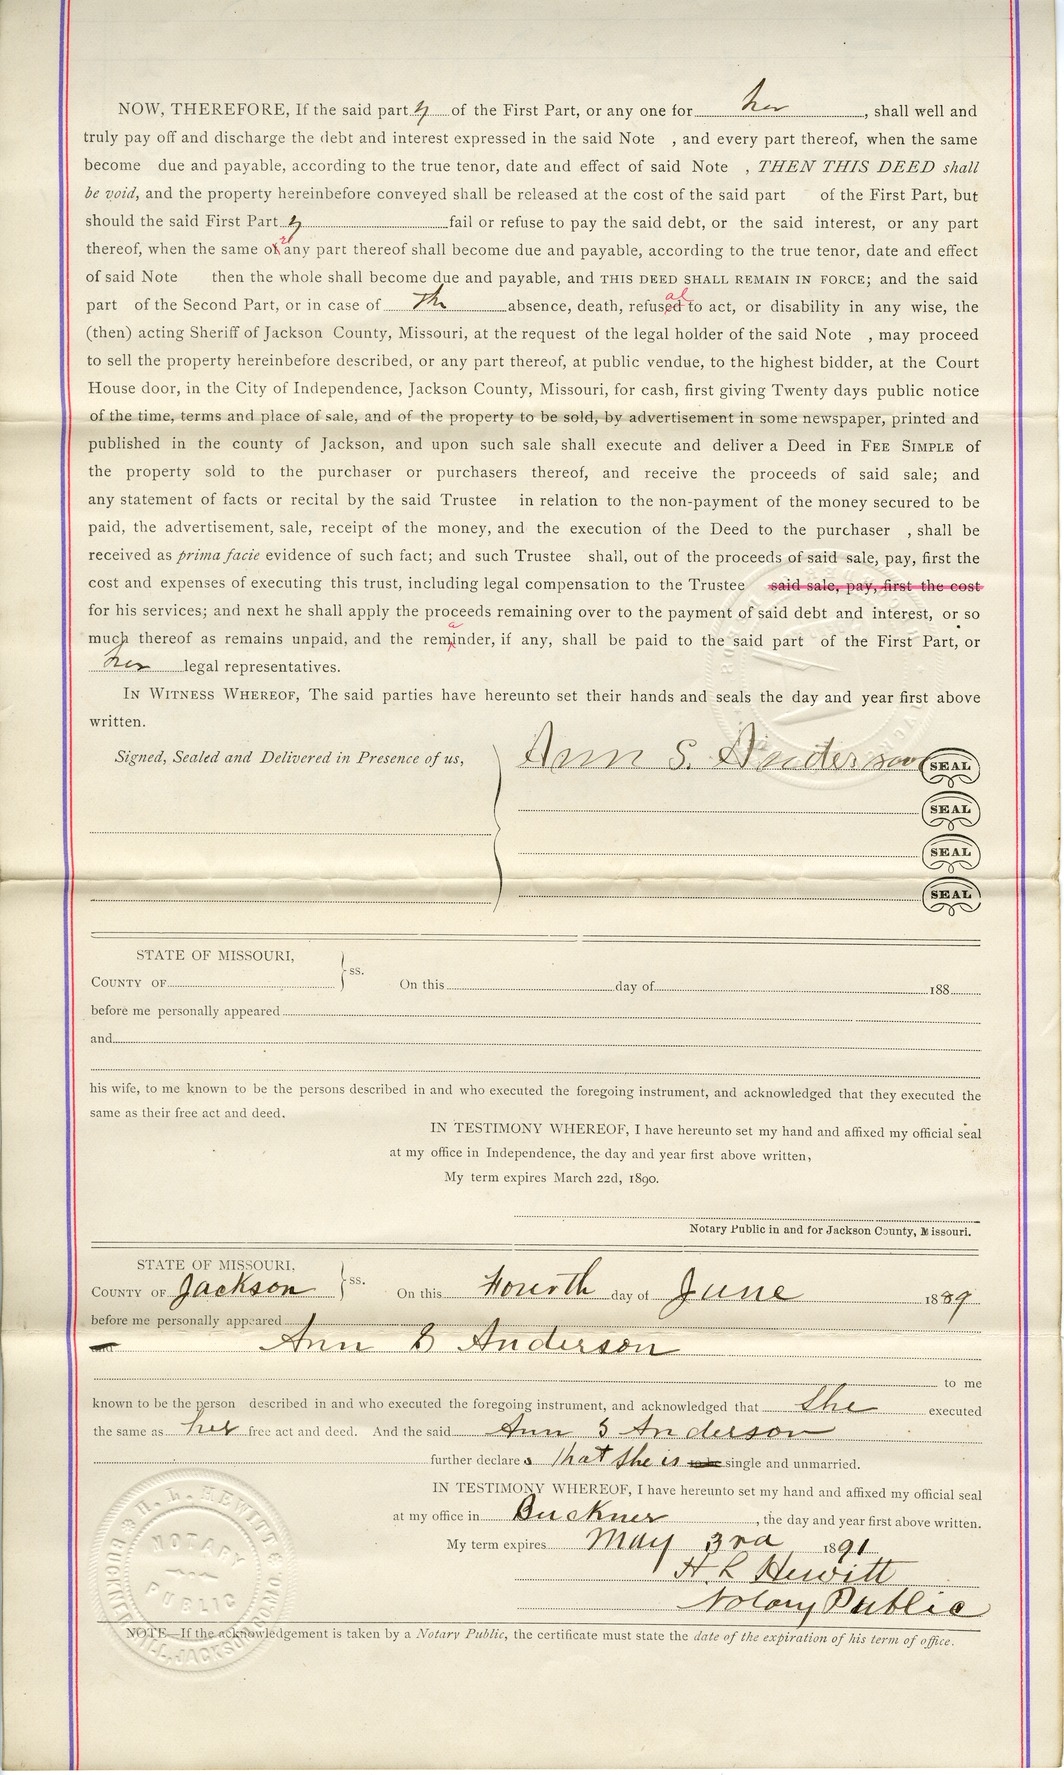 NOW, THEREFORE, If the said part y of the First Part, or any one for her, shall well and
truly pay off and discharge the debt and interest expressed in the said Note , and every part thereof, when the same
become due and payable, according to the true tenor, date and effect of said Note , THEN THIS DEED shall
be void, and the property hereinbefore conveyed shall be released at the cost of the said part of the First Part, but
should the said First Part y fail or refuse to pay the said debt, or the said interest, or any part
thereof, when the same or any part thereof shall become due and payable, according to the true tenor, date and effect
of said Note then the whole shall become due and payable, and THIS DEED SHALL REMAIN IN FORCE; and the said
part of the Second Part, or in case of the absence, death, refusal to act, or disability in any wise, the
(then) acting Sheriff of Jackson County, Missouri, at the request of the legal holder of the said Note , may proceed
to sell the property hereinbefore described, or any part thereof, at public vendue, to the highest bidder, at the Court
House door, in the City of Independence, Jackson County, Missouri, for cash, first giving Twenty days public notice
of the time, terms and place of sale, and of the property to be sold, by advertisement in some newspaper, printed and
published in the county of Jackson, and upon such sale shall execute and deliver a Deed in FEE SIMPLE of
the property sold to the purchaser or purchasers thereof, and receive the proceeds of said sale; and
any statement of facts or recital by the said Trustee in relation to the non-payment of the money secured to be
paid, the advertisement, sale, receipt of the money, and the execution of the Deed to the purchaser , shall be
received as prima facie evidence of such fact; and such Trustee shall, out of the proceeds of said sale, pay, first the
cost and expenses of executing this trust, including legal compensation to the Trustee said sale, pay, first the cost
for his services; and next he shall apply the proceeds remaining over to the payment of said debt and interest, or so
much thereof as remains unpaid, and the remainder, if any, shall be paid to the said part of the First Part, or
her legal representatives.
IN WITNESS WHEREOF, The said parties have hereunto set their hands and seals the day and year first above
written.
Signed, Sealed and Delivered in Presence of us,
Ann S. Anderson SEAL
SEAL
SEAL
SEAL
STATE OF MISSOURI,
COUNTY OF ss. On this day of 188
before me personally appeared
and
his wife, to me known to be the persons described in and who executed the foregoing instrument, and acknowledged that they executed the
same as their free act and deed.
IN TESTIMONY WHEREOF, I have hereunto set my hand and affixed my official seal
at my office in Independence, the day and year first above written,
My term expires March 22d, 1890.
Notary Public in and for Jackson County, Missouri.
STATE OF MISSOURI,
COUNTY OF Jackson ss. On this Fourth day of June 1889
before me personally appeared
and Ann S Anderson
to me
known to be the person described in and who executed the foregoing instrument, and acknowledged that She executed
the same as her free act and deed. And the said Ann S Anderson
further declares that She is to be single and unmarried.
IN TESTIMONY WHEREOF, I have hereunto set my hand and affixed my official seal
at my office in Buckner, the day and year first above written.
My term expires May 3rd 1891
H L Hewitt
Notary Public
H. L. HEWITT
NOTARY
PUBLIC
NOTE—If the acknowledgement is taken by a Notary Public, the certificate must state the date of the expiration of his term of office.